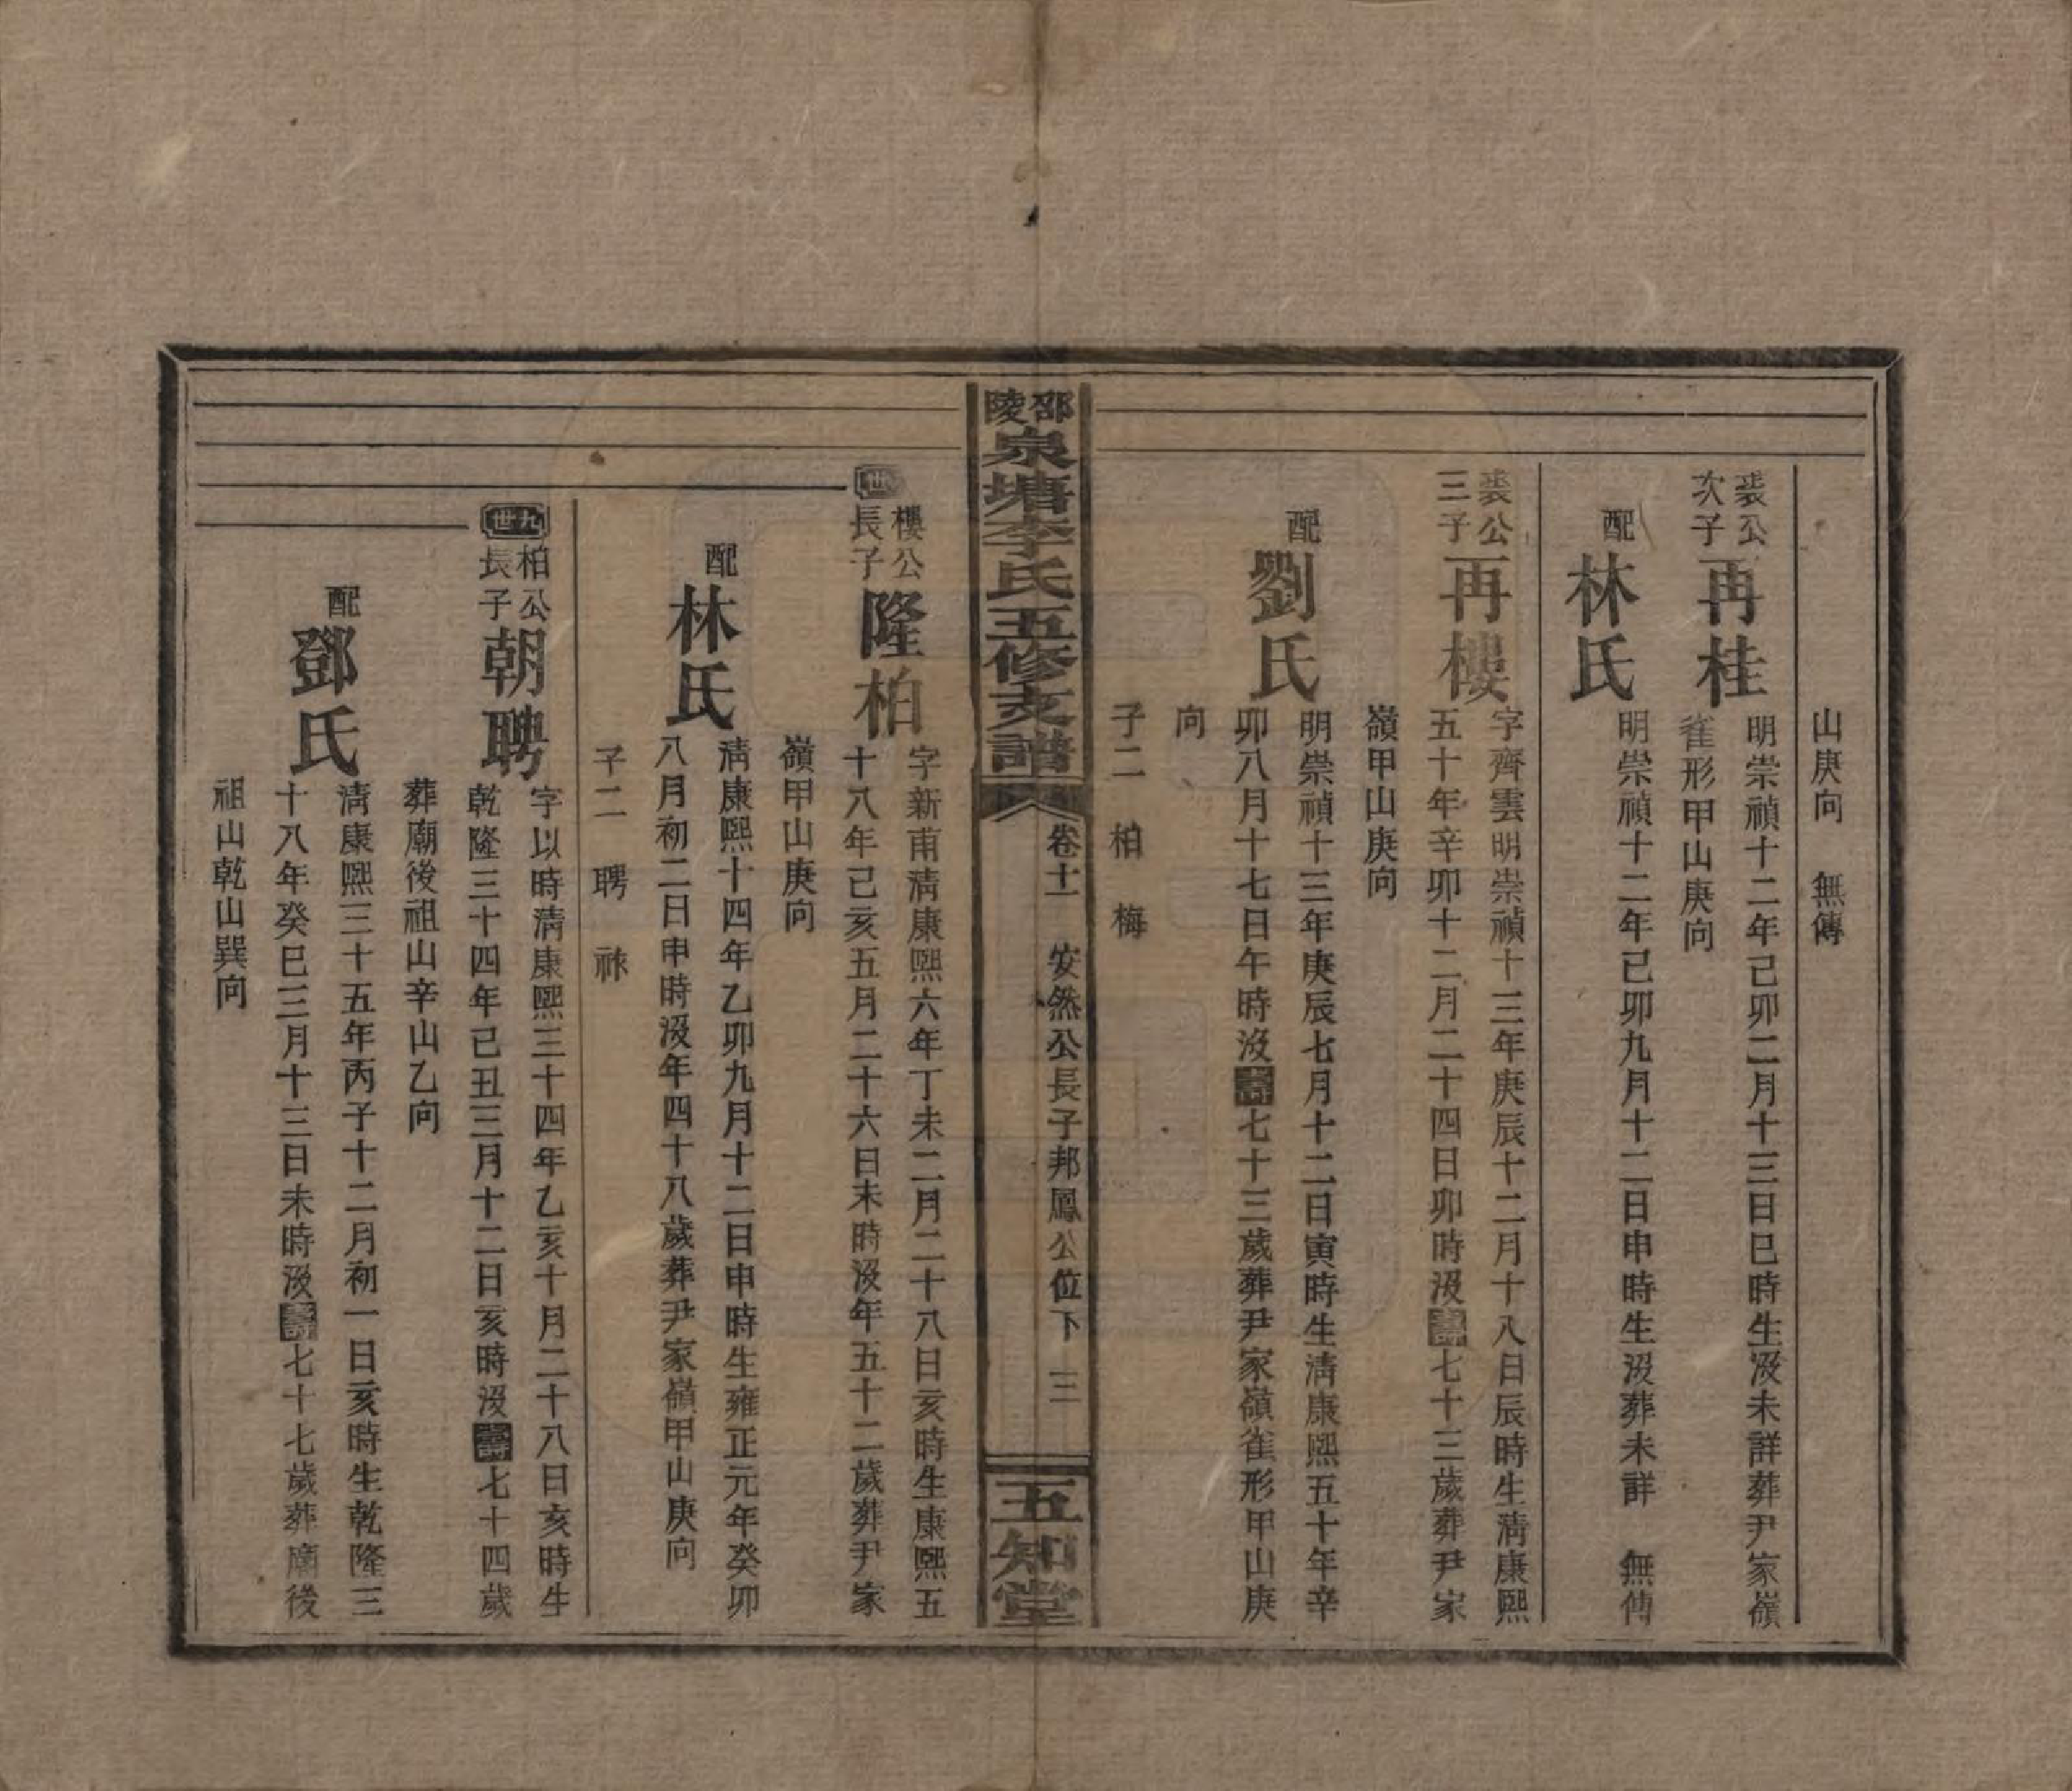 山庚向　無傳
裴公
次子
再桂
明崇禎十二年己卯二月十三日巳時生沒未詳葬尹家嶺
雀形甲山庚向
配
林氏
明崇禎十二年己卯九月十二日申時生沒葬未詳　無傳
裴公
三子
再樓
字齊雲明崇禎十三年庚辰十二月十八日辰時生清康熙
五十年辛卯十二月二十四日卯時沒壽七十三歲葬尹家
嶺甲山庚向
配
劉氏
明崇禎十三年庚辰七月十二日寅時生清康熙五十年辛
卯八月十七日午時沒壽七十三歲葬尹家嶺雀形甲山庚
向
子二　柏　梅
邵陵
泉塘李氏五修支譜
卷十一　安然公長子邦鳳公位下　三
五知堂
世
樓公
長子
隆柏
字新甫清康熙六年丁未二月二十八日亥時生康熙五
十八年己亥五月二十六日未時沒年五十二歲葬尹家
嶺甲山庚向
配
林氏
清康熙十四年乙卯九月十二日申時生雍正元年癸卯
八月初二日申時沒年四十八歲葬尹家嶺甲山庚向
子二　聘
九世
柏公
長子
朝聘
字以時清康熙三十四年乙亥十月二十八日亥時生
乾隆三十四年己丑三月十二日亥時沒壽七十四歲
葬廟後祖山辛山乙向
配
鄧氏
清康熙三十五年丙子十二月初一日亥時生乾隆三
十八年癸巳三月十三日未時沒壽七十七歲葬廟後
祖山乾山巽向